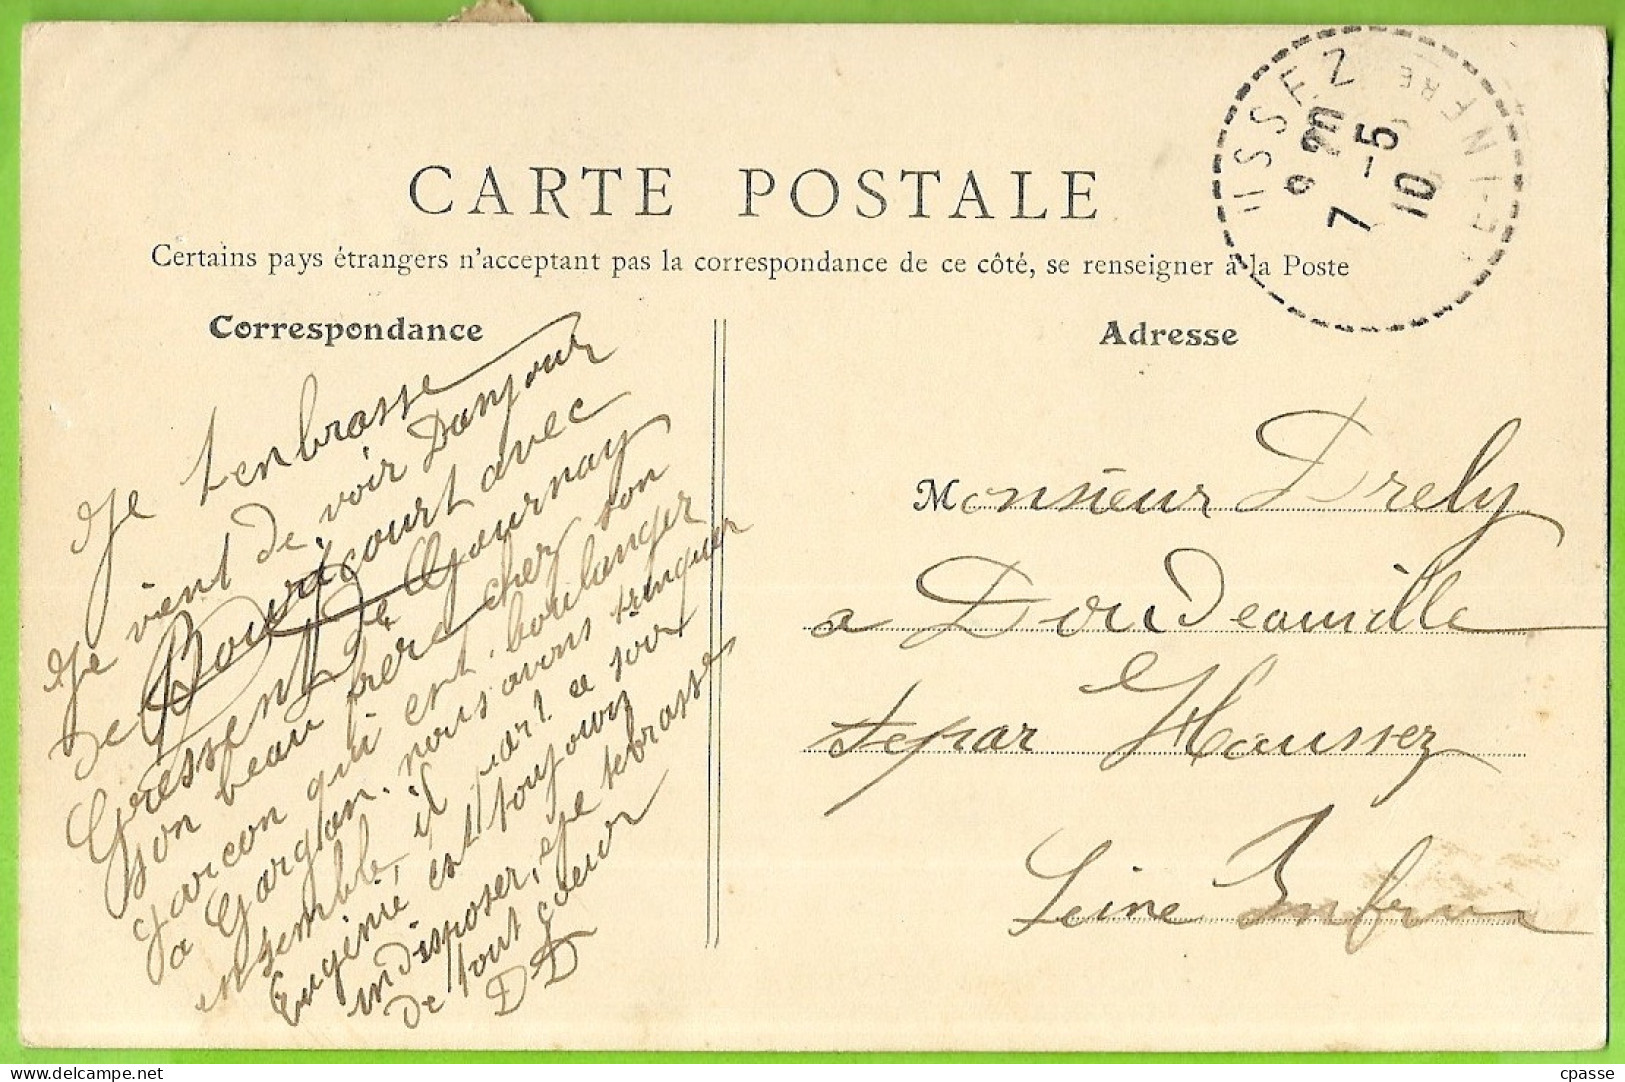 CARTE POSTALE
Certains pays étrangers n'acceptant pas la correspondance de ce côté, se renseigner à la Poste
USSEZ
INFRE
9 20
7 -5
10
Correspondance
Adresse
Je tenbrasse
Je vient de voir Danjour
de Bourdcourt avec
Gressent de Gournay
son beau frère chez son
garcon qui est boulanger
a Gargan. nous avons trinquer
ensemble, il part ce soir
Eugénie est toujours
indisposer, Je tebrasse
de tout coeur
DD
Monsieur Drely
a Doudeauville
par Haussez
Seine Infre
cpasse